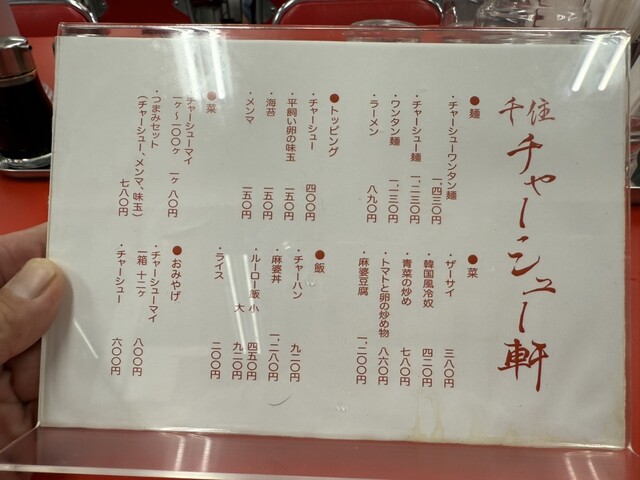 千住 チャーシュー軒
●麺
・チャーシューワンタン麺 一、四三〇円
・チャーシュー麺 一、二三〇円
・ワンタン麺 一、一三〇円
・ラーメン 八九〇円
●トッピング
・チャーシュー 四〇〇円
・平飼い卵の味玉 一五〇円
・海苔 一五〇円
・メンマ 一五〇円
●菜
・チャーシューマイ
一ヶ〜一〇〇ヶ 一ヶ 八〇円
・つまみセット
(チャーシュー、メンマ、味玉) 七八〇円
●菜
・ザーサイ 三八〇円
・韓国風冷奴 四二〇円
・青菜の炒め 七八〇円
・トマトと卵の炒め物 八六〇円
・麻婆豆腐 一、二〇〇円
●飯
・チャーハン 九二〇円
・麻婆丼 一、二八〇円
・ルーロー飯 小 四五〇円
大 九二〇円
・ライス 二〇〇円
●おみやげ
・チャーシューマイ
一箱 十二ヶ 八〇〇円
・チャーシュー 六〇〇円